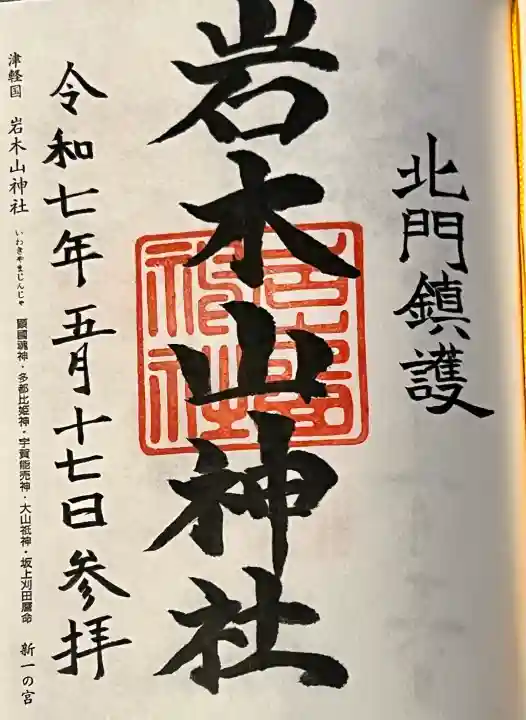 北門鎮護
岩木山神社
令和七年五月十七日参拝
津軽国 岩木山神社 いわきやまじんじゃ 顕國魂神・多都比姫神・宇賀能売神・大山祇神・坂上刈田麿命 新一の宮